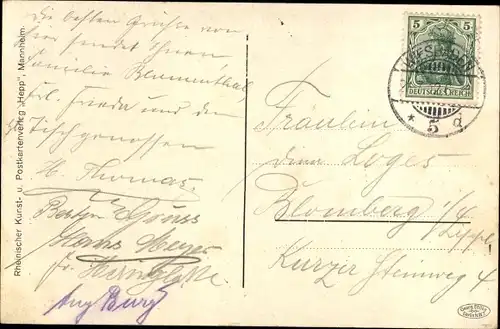 Die besten Grüsse von
hier sendet Ihnen
Familie Blumenthal,
Frl. Frieda und den
Tischgenossen
H. Thomas
Besten Gruss
Hans Meyer
Fr.
Aug Burg
Rheinischer Kunst- u. Postkartenverlag "Hepp", Mannheim.
5 5
DEUTSCHES REICH
WIESBADEN
* 5 d
Fräulein
Loges
Blomberg i/L
Lippe
Kurzer Steinweg 4